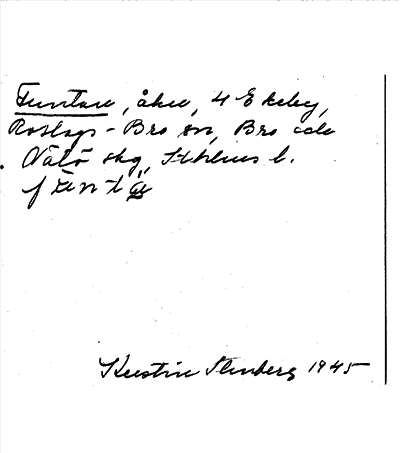 Funtare, åker, 4 Ekeby,
Roslags-Bro sn, Bro och
Vätö skg, Sthlms l.
Kerstin Stenberg 1945